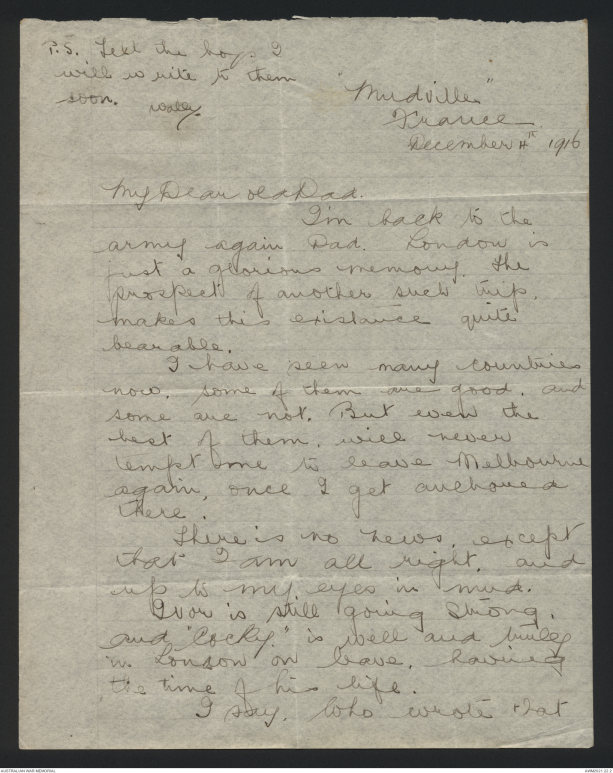 P.S. Tell the boys I
will write to them
soon. Wally.
"Mudville"
France
December 4th 1916
My Dear old Dad.
I'm back to the
army again Dad. London is
just a glorious memory. The
prospect of another such trip,
makes this existance quite
bearable.
I have seen many countries
now, some of them are good, and
some are not. But even the
best of them, will never
tempt me to leave Melbourne
again, once I get anchored
there.
There is no news, except
that I am all right, and
up to my eyes in mud.
Ivor is still going strong,
and "Cocky" is well and truly
in London on leave, having
the time of his life.
I say, Who wrote that
AUSTRALIAN WAR MEMORIAL